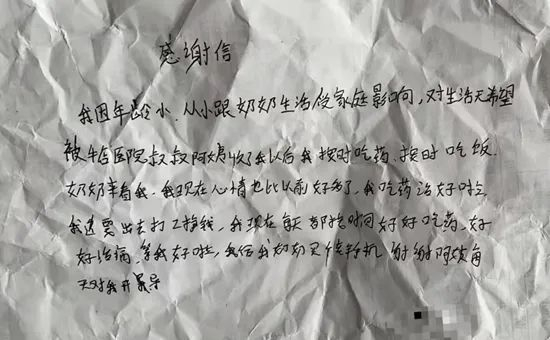 感谢信
我因年龄小、从小跟奶奶生活受家庭影响,对生活无希望
被 医院叔叔阿姨收了我以后我按时吃药、按时吃饭.
奶奶幸着我、我现在心情也比以前好多了,我吃药治好啦
我还要出去打工挣钱,我现在每天都按时间好好吃药、好
好治病、等我好啦,我给我奶奶买 机 谢谢阿姨每
天对我开导